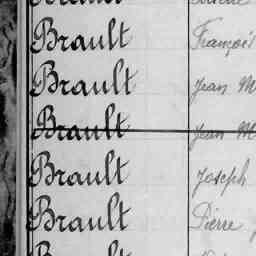 Brault François
Brault Jean M
Brault Jean M
Brault Joseph
Brault Pierre